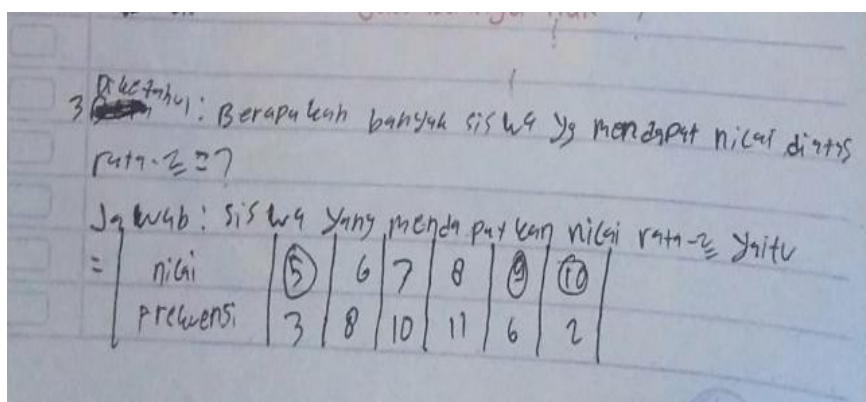 3 Diketahui : Berapakah banyak siswa yg mendapat nilai diatas
rata-2 = ?
Jawab : siswa yang mendapatkan nilai rata-2 yaitu
= nilai 5 6 7 8 9 10
prekuensi 3 8 10 11 6 2